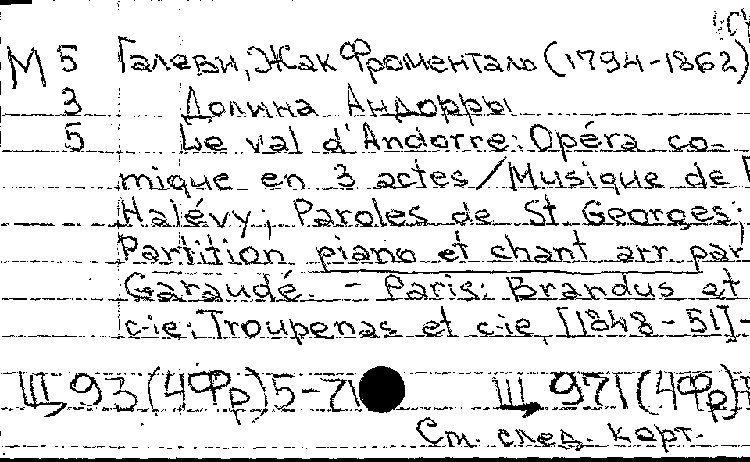 М 5 Галеви, Жак Фроменталь (1794-1862)
3 Долина Андорры
5 Le val d'Andorre: Opéra co-
mique en 3 actes / Musique de
Halévy; Paroles de St Georges;
Partition piano et chant arr par
Garaudé. - Paris: Brandus et
c-ie; Troupenas et c-ie, [1848-51]-
Щ 93 (4Фр) 5-71 Щ 971 (4Фр)
См. след. карт.